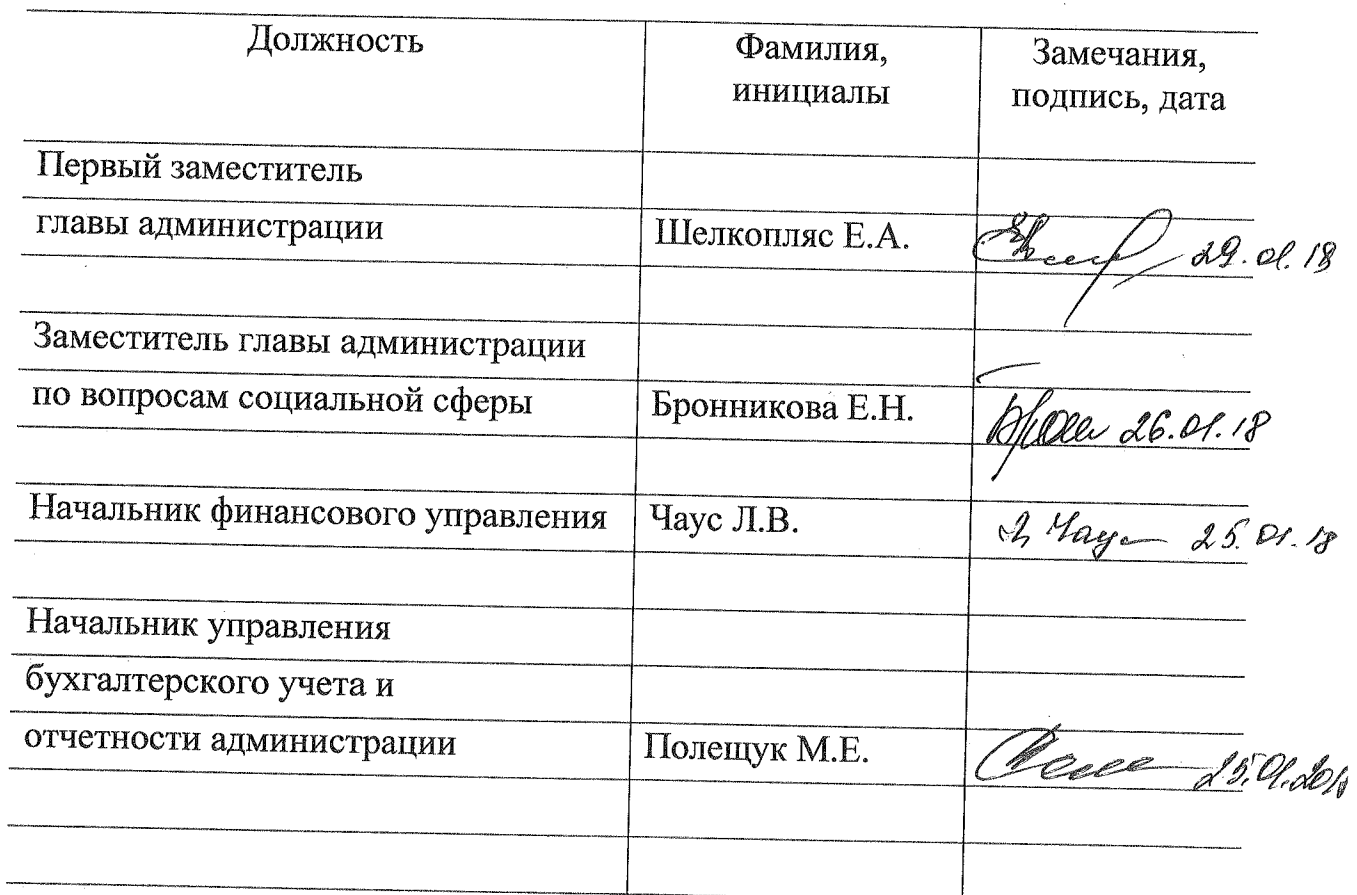 Должность Фамилия, Замечания,
инициалы подпись, дата
Первый заместитель
главы администрации Шелкопляс Е.А. 29.01.18
Заместитель главы администрации
по вопросам социальной сферы Бронникова Е.Н. 26.01.18
Начальник финансового управления Чаус Л.В. Чаус 25.01.18
Начальник управления
бухгалтерского учета и
отчетности администрации Полещук М.Е.